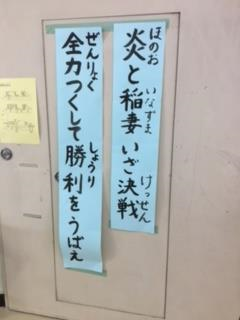 炎と稲妻 いざ決戦
ほのお
いなずま
けっせん
全力つくして勝利をうばえ
ぜんりょく
しょうり